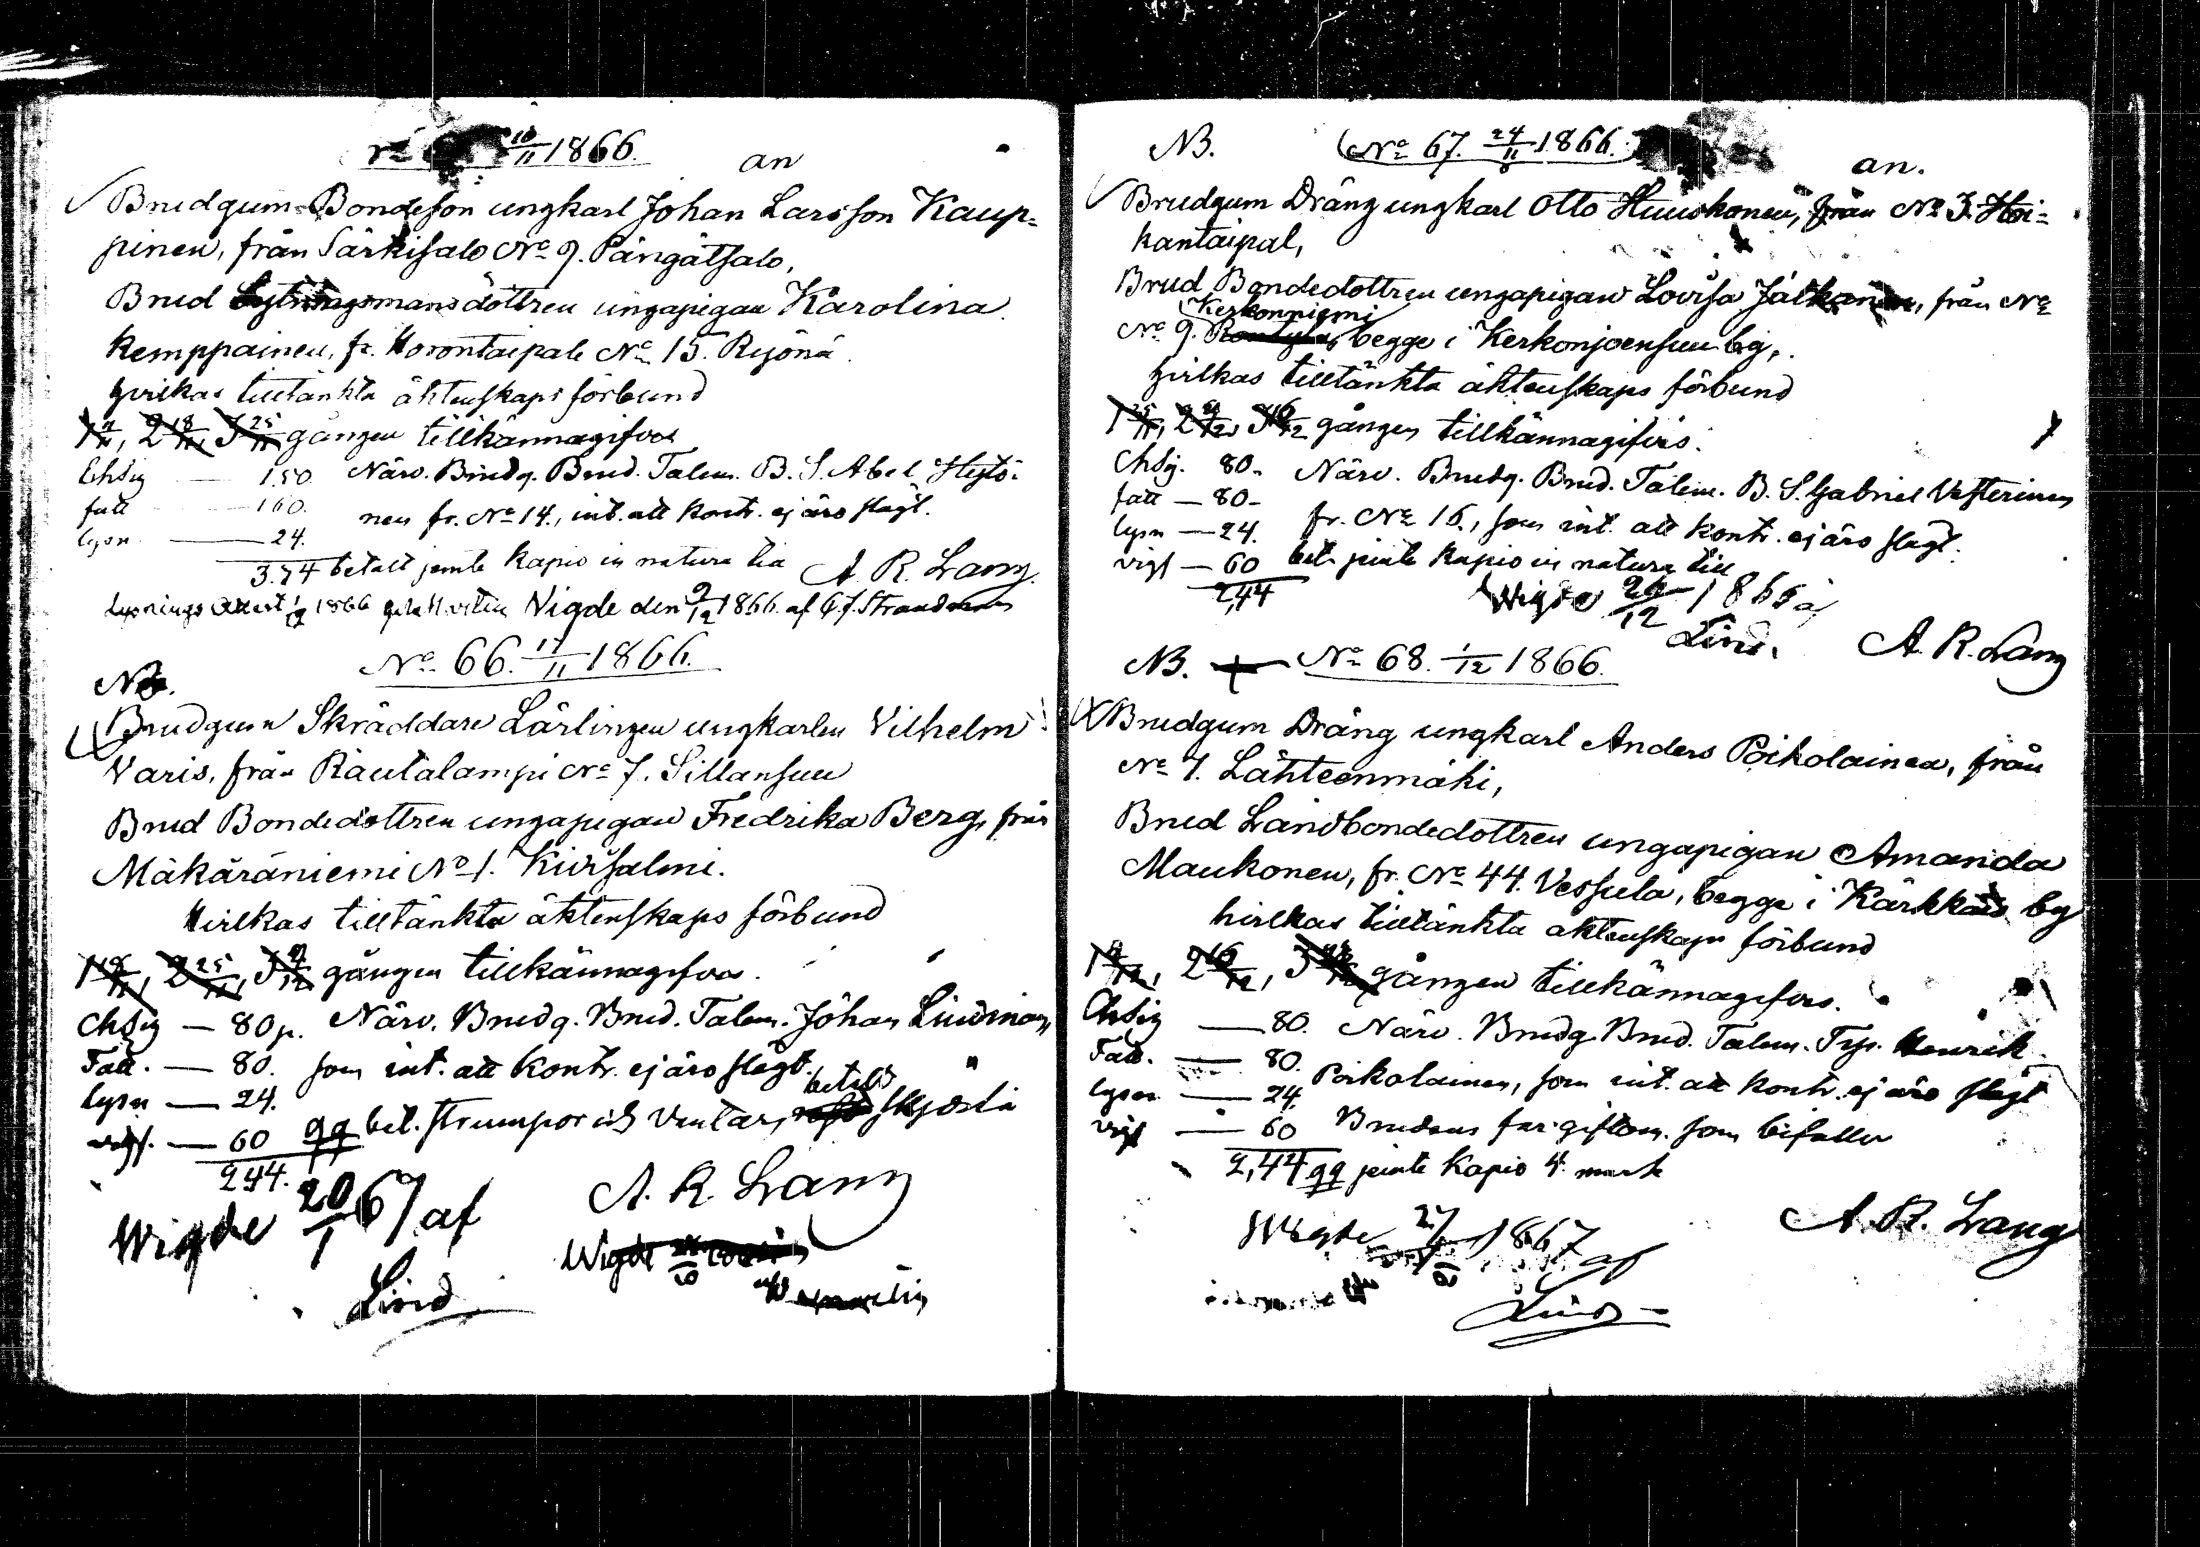 10/11 1866.
an
Brudgum Bondeson ungkarl Johan Larsson Kaup-
pinen, från Särkisalo No 9. Pängätsalo,
Brud dottren ungapigan Karolina
Kemppainen, fr. Horontaipale No 15.
hvilkas tilltänkta äktenskaps förbund
1 11/11, 2 18/11, 3 25/11 gången tillkännagifvos
Chsig — 1.50. Närv. Brudg. Brud. Talem. B. S. Abel Hytö-
fatt — 160. nen fr. No 14., int. att kontr. ej äro slägt.
lysn — 24.
3.74 betalt jemte kapio in natura till A. R. Lang.
Lysnings attest 1/12 1866 Vigde den 9/12 1866. af
No 66. 17/11 1866.
Brudgum Skräddare Lärlingen ungkarlen Vilhelm
Varis, från Rautalampi No 7. Sillansuu
Brud Bondedottren ungapigan Fredrika Berg, från
Mäkäräniemi No 1. Kivisalmi.
Hvilkas tilltänkta äktenskaps förbund
1 18/11, 2 25/11, 3 2/12 gången tillkännagifvos.
Chsig — 80 p. Närv. Brudg. Brud. Talem. Johan Lindman,
Fatt. — 80. som int. att kontr. ej äro slägt.
lysn — 24. betalt
vigs. — 60 qq bet. strumpor och vantar, skjorta
2,44.
Wigde 20/1 67 af A. R. Lang
Lind
Wigde
NB. No 67. 24/11 1866.
an.
Brudgum Dräng ungkarl Otto Huuskonen, från No 3. Hoi-
kantaipal,
Brud Bondedottren ungapigan Lovisa från No
Kerkonniemi
No 9. begge i Kerkonjoensuu by,
hvilkas tilltänkta äktenskaps förbund
1 25/11, 2 2/12, 3 /12 gången tillkännagifvos.
Chsg. 80. Närv. Brudg. Brud. Talem. B. S. Gabriel Vesterinen
fatt — 80 — fr. No 16., som int. att kontr. ej äro slägt.
lysn — 24.
vigs — 60 bet. jemte kapio in natura till
2,44 Wigde 26/12 1866 af
Lind. A. R. Lang
NB. No 68. 1/12 1866.
Brudgum Dräng ungkarl Anders Poikolainen, från
No 7. Lähteenmäki,
Brud Landbondedottren ungapigan Amanda
Maukonen, fr. No 44. Vessula, begge i Kärkkäis by
hvilkas tilltänkta äktenskaps förbund
1 9/12, 2 16/12, 3 gången tillkännagifvos.
Chsig — 80. Närv. Brudg. Brud. Talem. Trp. Henrik
Fatt. — 80. Poikolainen, som int. att kontr. ej äro slägt
lysn — 24.
vigs — 60 Brudens far giftom. som bifaller
2,44 qq jemte kapio 4 mark
Wigde 1867 af A. R. Lang
Lind